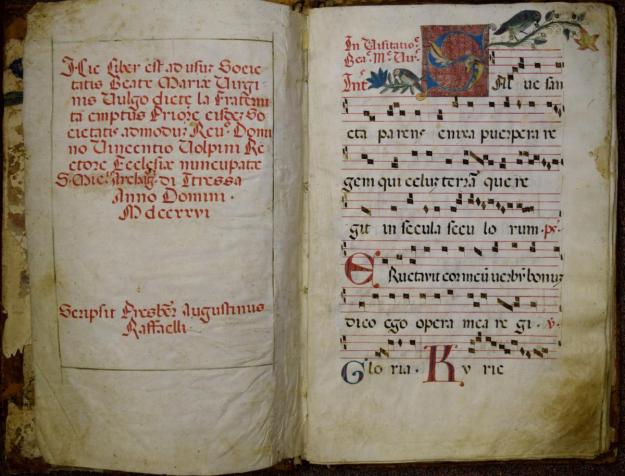 Hic Liber est ad usuz Socie
tatis Beate Mariæ Virgi
nis Vulgo dicte la Fraterni
ta emptus Priore eisdez So
cietatis admoduz Reuᵒ Domi
no Vincentio Volpini Re
ctore Ecclesiæ nuncupatæ
S. Mic: Archāg: di Tressa
Anno Domini ·
Mdccxxvi
Scripsit Presber̄ Augustinus
Raffaelli·
In Visitatioᵉ
Beaᵉ Mᵉ Virᵉ
Int
S Al ue san
cta parens enixa puerpera re
gem qui celuz terrā que re
git in secula secu lo rum · ps·
E Ructavit cor meū verbū bonuz
dico ego opera mea re gi · v·
Glo ria · Ky rie